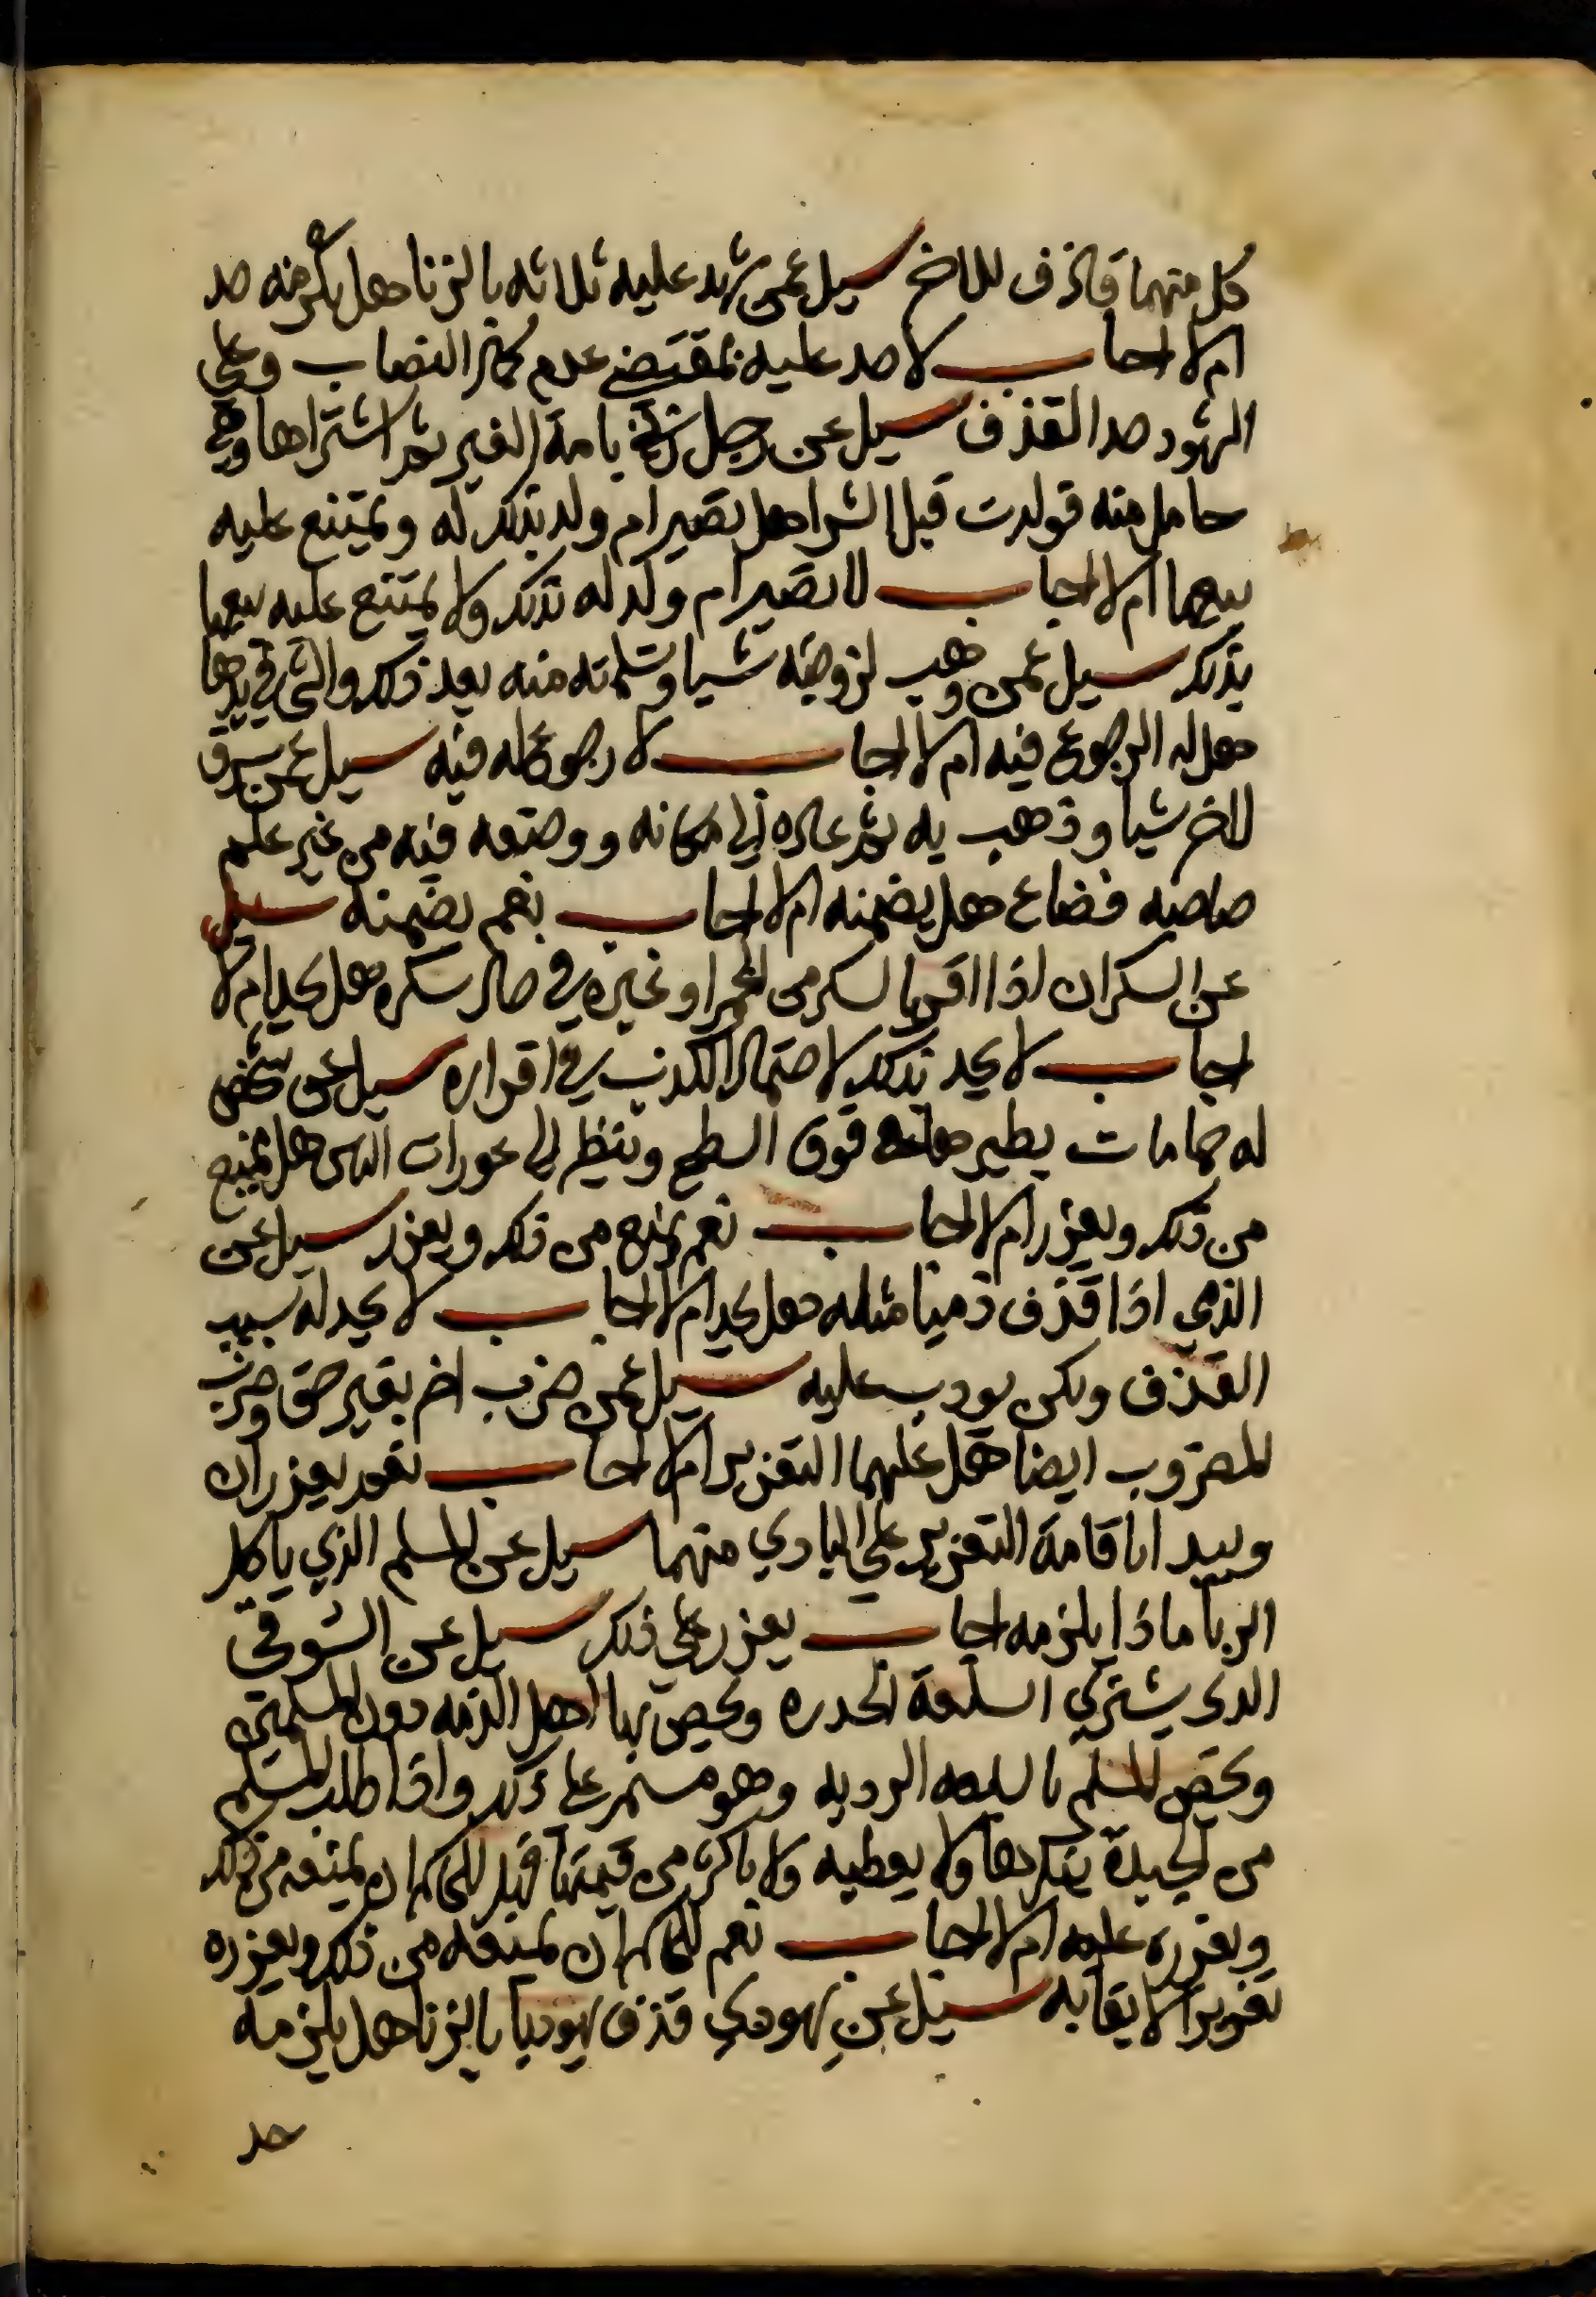 كل منهما قاذف للاخر سيل عمن شهد عليه ثلاثه بالزنا هل يلزمه حد
ام لا اجاب لا حد عليه بمقتضي عدم كمال النصاب وعلي
الشهود حد القذف سيل عن رجل زني بامة الغير ثم اشتراها وهي
حامل منه فولدت قبل الشرا هل تصير ام ولد بذلك له ويمتنع عليه
بيعها ام لا اجاب لا تصير ام ولد له بذلك ولا يمتنع عليه بيعها
بذلك سيل عمن وهب لزوجته شيا وتسلمته منه بعد ذلك والشي في يدها
هل له الرجوع فيه ام لا اجاب لا رجوع له فيه سيل عمن سرق
للاخر شيا وذهب به ثم عاده الي مكانه ووضعه فيه من غير علم
صاحبه فضاع هل يضمنه ام لا اجاب نعم يضمنه سيل
عن السكران اذا اقر بالسكر من الخمر او غيره في حال سكره هل يحد ام لا
اجاب لا يحد بذلك لاحتمال الكذب في اقراره سيل عن شخص
له حمامات يطيرها فوق السطح وينظر الي عورات الناس هل يمنع
من ذلك ويعزر ام لا اجاب نعم يمنع من ذلك ويعزر سيل عن
الذمي اذا قذف ذميا مثله هل يحد ام لا اجاب لا يحد له بسبب
القذف ولكن يودب عليه سيل عمن ضرب اخر بغير حق وضربه
المضروب ايضا هل عليهما التعزير ام لا اجاب نعم يعزران
ويبدا باقامة التعزير علي البادي منهما سيل عن المسلم الذي ياكل
الربا ماذا يلزمه اجاب يعزر علي ذلك سيل عن السوقي
الذي يشتري السلعة الجيده ويخص بها اهل الذمه دون المسلمين
ويخص المسلم بالسلعه الرديه وهو مستمر علي ذلك واذا طلب المسلم
من الجيدة ينكرها ولا يعطيه ولا باكثر من قيمتها فهل للحاكم ان يمنعه من ذلك
ويعزره عليه ام لا اجاب نعم للحاكم ان يمنعه من ذلك ويعزره
تعزيرا لايقا به سيل عن يهودي قذف يهوديا بالزنا هل يلزمه
حد